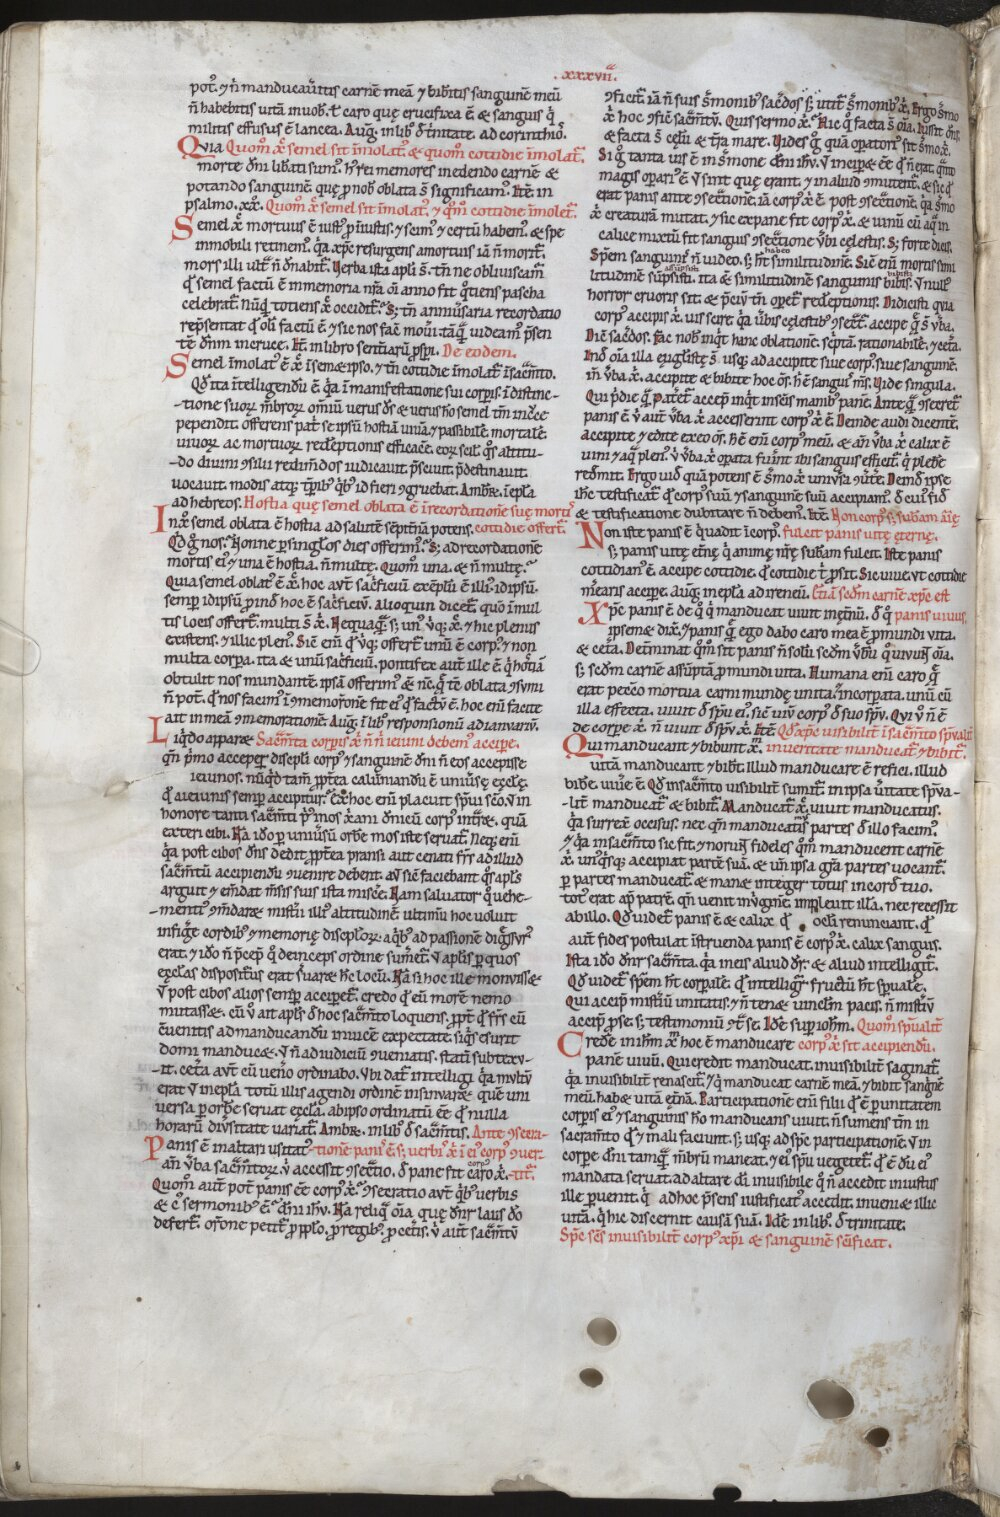 .xxxvii.
pot̄. ⁊ n̄ manducau̅itis carnē meā ⁊ bib̅itis sanguinē meū
n̄ habebitis uitā in uob̅. ł caro quę crucifixa ē & sanguis q̄
militis effusus ē lancea. Aug̅. in lib̅ d̅ t̅nitate. ad corinthiōs.
Quia Quom̅ x̅c semel sit im̅olat᷒. & quom̅ cottidie im̅olat̅.
morte dn̅i lib̅ati sum᷒. hui᷒ rei memores in edendo carnē &
potando sanguinē. quę p̱ nob̅ oblata s̅ significam᷒. Itē in
psalmo. xx. Quom̅ x̅c semel sit im̅olat᷒. ⁊ q̅m̅ cottidie im̅olet̅.
Semel x̅c mortuus ē iust᷒ p̱ iniustis. ⁊ scim᷒ ⁊ certū habem᷒. & spe
immobili retinem᷒. q̅a xp̅c resurgens a mortuis iā n̄ morit̅.
mors illi ult̅ n̄ dn̅abit̅. Uerba ista apl̅i s̅. tn̅ ne obliuiscam̅
q̅ semel factū ē in memoria nr̅a om̅i anno fit q̅tiens pascha
celebrat̅. Nūq̅d totiens x̅c occidit̅? S; tn̅ anniu̅saria recordatio
rep̅sentat q̅ oli̅ factū ē ⁊ sic nos fac̅ mou̅i. tāq̅ uideam᷒ p̅sen
tē dn̅m in cruce. It̅ in libro sent̅iarū p̅sp̅i. De eodem.
Semel im̅olat᷒ ē x̅c in sem& ipso. ⁊ tn̅ cottidie im̅olat̅ i̅ sac̅m̅to.
Qđ ita i̅ntelligendū ē. q̅a i̅ manifestatione sui corpis. i̅ distinc-
-tione suoꝝ m̅broꝝ om̅iū uerus d̅s & uerus hō semel tm̅ in c̅ce
pependit. offerens pat̅ se ip̅sū hostiā uiuā. ⁊ passibilē. mortalē.
uiuoꝝ ac mortuoꝝ red̅eptionis efficacē. eoꝝ scil̅. q̅s altitu-
-do diuini 9silii redim̅dos iudicauit. p̅sciuit. p̅destinauit.
uocauit. modis atq; t̅pib᷒ q̅b᷒ id fieri 9gruebat. Amb̅r. i̅ ep̅la
ad hebreos. Hostia quę semel oblata ē i̅ recordationē suę morti᷒
In x̅o semel oblata ē hostia ad salutē sempit̅nā potens. cottidie offert̅.
Qđ g̊ nos? Nonne p̱ sing̅los dies offerim᷒? S; ad recordationē
mortis ei᷒ ⁊ una ē hostia. n̄ multę. Quom̅ una. & n̄ multę?
Quia semel oblat᷒ ē x̅c. hoc aut̅ sac̅ficiū exēplū ē illi᷒. id ipsū.
semp̱ id ipsū p̱inđ hoc ē sac̅ficiū. Alioquin dicet̅. quo i̅ mul
tis locis offert̅. multi s̅ x̅i. Nequaq̅. s; un᷒ u̅q; x̅c. ⁊ hic plenus
existens. ⁊ illic plen᷒. Sic̅ eni̅ q̅ u̅q; offert̅ unū ē corp᷒. ⁊ non
multa corpa. ita & unū sac̅ficiū. pontifex aut̅ ille ē q̅ hostiā
obtulit nos mundantē. ipsā offerim᷒ & n̅c. q̅ t̅c oblata 9sumi
n̄ pot̅. q̅ nos facim᷒ i̅ 9memo̅r̅one̅ fit ei᷒ q̅ factū ē. hoc eni̅ facite
ait in meā 9memorationē. Aug̅. i̅ lib̅ responsionū ad ianuariū.
Liq̅do appar& Sac̅m̅ta corpis x̅i n̄ n̄ ieiuni debem᷒ accipe.
q̅n p̅mo accepeꝝ discipl̅i corp᷒ ⁊ sanguinē dn̅i n̄ eos accepisse
ieiunos. nūq̅d tam̅ p̱pt̅ea calūniandū ē uniu̅sę ęccl̅ę.
q̅ a ieiunis semp̱ accipitur? Ex hoc eni̅ placuit sp̅ui sc̅o. ut in
honore tanti sac̅m̅ti p̱us in os x̅ani dn̅icū corp᷒ int̅r&. quā
exteri cibi. Nā id̅o p̱ uniu̅sū orbē mos iste seruat̅. Neq; eni̅
q̅a post cibos dn̅s dedit. p̱pt̅ea pransi aut cenati fr̅s ad illud
sac̅m̅tū accipiendū 9uenire debent. aut̅ sic̅ faciebant q̅s apl̅s
arguit ⁊ em̅dat m̅sis suis ista misc̅e. Nam saluator q̅ uehe-
-menti᷒ 9m̅dar& mist̅ii illi᷒ altitudinē. ultimū hoc uoluit
infig̅e cordib᷒ ⁊ memorię discipl̅oꝝ. a q̅b᷒ ad passionē dig̅ssur᷒
erat. ⁊ id̅o n̄ p̅cep̱ q̊ deinceps ordine sum̅et̅. ut apl̅is p̱ quos
ęccl̅as dispositur᷒ erat s̅uar& hc̅ locū. Nā si hoc ille monuiss&
ut post cibos alios semp̱ accipet̅. credo q̅ eū morē nemo
mutass&. cū u̅ ait apl̅s d̅ hoc sac̅m̅to loquens. p̱pt̅ q̅ fr̅s cū
c̅uenitis ad manducandū inuicē expectate. siq̅s esurit
domi manduc&. ut n̄ ad iudiciū 9ueniatis. stati̅ subtexu-
-it. cet̅a aut̅ cū uen̅o ordinabo. Vbi dat̅ intelligi q̅a mult̅ū
erat ut in ep̅la totū illis agendi ordinē insinuar&. que̅ uni
uersa p̱ orbē seruat ęccl̅a. ab ipso ordinatū ēe q̅ nulla
horarū diu̅sitate uariat̅. Amb̅r. in lib̅ d̅ sac̅m̅tis. Ante 9secra-
Panis ē in altari usitat᷒ -tionē pani᷒ ē. s; verbi᷒ x̅i i̅ ei᷒ corp᷒ 9ver
an̅ u̅ba sac̅m̅toꝝ. u̅ accessit 9sec̅tio. d̅ pane fit caro x̅i. -tit̅.
Quom̅ aut̅ pot̅ panis ēe corp᷒ x̅i? 9secratio aut̅ q̅b᷒ uerbis
& c᷒ sermonib᷒ ē? dn̅i ih̅u. Nā reliq̅ om̅ia quę dn̅r laus d̅o
defert̅. or̅one petit̅ p̱ pplo. p̱ regib᷒. p̱ cet̅is. u̅ aut̅ sac̅m̅tū
9ficit̅. iā n̄ suis s̅monib᷒ sac̅dos. s; utit̅ s̅monib᷒ x̅i. Ergo s̅mo
x̅i hoc 9ficit sac̅m̅tū. Quis sermo x̅i? Hic q̊ facta s̅ om̅ia. Iussit dn̅s
& facta s̅ cęlū & t̅ra mare. Uides g̊ quā operatori᷒ sit s̅mo x̅i.
Si g̊ tanta uis ē in s̅mone dn̅i ih̅u. ut incip& ēe q̅ n̄ erat. q̅nto
magis operari᷒ ē ut sint quę erant. ⁊ in aliud 9mutent̅. & sic q̅
erat panis ante 9sec̅tionē. iā corp᷒ x̅i ē post 9sec̅tionē. q̅a s̅mo
x̅i creaturā mutat. ⁊ sic ex pane fit corp᷒ x̅i. & uinū cū aq̅ in
calice mixtū fit sanguis 9sec̅tione u̅bi cęlestis. S; forte dicis.
Sp̅em sanguini᷒ n̄ video. s; h̅t similitudinē. Sic̅ eni̅ mortis simi
litudinē sūpsisti. ita & similitudinē sanguinis bibis. ut null᷒
horror cruoris sit. & p̅ciū tn̅ op̱et̅ red̅eptionis. Didicisti quia
corp᷒ accipis x̅i. vis scire. q̅a u̅bis cęlestib᷒ 9sec̅t̅. accipe quę s̅ u̅ba.
Dic̅ sac̅dos. Fac nob̅ inq̅t hanc oblationē. sc̅ptā. rationabilē. ⁊ cet̅a.
Ind̅ om̅ia illa eu̅g̅listę s̅. usq; ad accipite siue corp᷒. siue sanguinē.
in̅ u̅ba x̅i. accipite & bibite hoc om̅s. h̅ ē sangui᷒ m̅s. Uide singula.
Qui p̅die q̅ pat̅et̅. accep̱ inq̅t in sc̅is manib᷒ panē. Ante q̅ 9secret̅
panis ē. u̅ aut̅ u̅ba x̅i accesserint corp᷒ x̅i ē. Deinde audi dicentē.
accipite ⁊ edite ex eo om̅s. h̅ ē eni̅ corp᷒ meū. & an̅ u̅ba x̅i calix ē
uini ⁊ aq̅ plen᷒. u̅ u̅ba x̅i opata fu̅int ibi sanguis efficit̅. q̅ plebē
red̅mit. Ergo uid̅ quā potens ē s̅mo x̅i uniu̅sa 9u̅t̅e. Deind̅ ipse
ih̅c testificat̅ q̅ corp᷒ suū ⁊ sanguinē suū accipiam᷒. d̅ cui᷒ fid̅
& testificatione dubitare n̄ debem᷒. Itē. Non corp᷒ s; subam̅ aīę
Non iste panis ē qui uadit i̅ corp᷒. fulcit panis uitę ęternę.
s; panis uitę et̅nę q̅ animę nr̅ę subam̅ fulcit. Iste panis
cottidian᷒ ē. accipe cottidie. q̅ cottidie t̅ p̱sit. Sic uiue. ut cottidie
m̅earis accipe. Aug̅. in ep̅la ad ireneū. Etiā sc̅dm carnē xp̅c est
Xp̅c panis ē de q̊ q̅ manducat uiuit in et̅nū. d̅ q̊ panis uiuus.
ipsem& dix̅. ⁊ panis q̅ ego dabo caro mea ē p̱ mundi uita.
& cet̅a. Det̅minat q̅m̅ sit panis n̄ solū sc̅dm u̅bū q̊ uiuūt om̅ia.
s; sc̅dm carnē assūptā p̱ mundi uita. Humana eni̅ caro q̅
erat pecc̅o mortua carni mundę unita. incorpata. unū cū
illa effecta. uiuit d̅ sp̅u ei᷒. sic̅ uiuū corp᷒ d̅ suo sp̅u. Qui u̅ n̄ ē
de corpe x̅i. n̄ uiuit d̅ sp̅u x̅i. Itē Qđ xp̅c uisibilit̅ i̅ sac̅m̅to sp̅ualit̅
Qui manducant ⁊ bibunt x̅m. in ueritate manducat̅ ⁊ bibit̅.
uitā manducant ⁊ bibūt. Illud manducare ē refici. illud
bib̅e. uiu̅e ē. Qđ in sac̅m̅to uisibilit̅ sumit̅. in ipsa u̅itate sp̅ua-
-lit̅ manducat̅ & bibit̅. Manducat̅ x̅c. uiuit manducatus.
q̅a surrex̅ occisus. nec q̅n manducam᷒ partes d̅ illo facim᷒.
⁊ q̅a in sac̅m̅to sic fit. ⁊ noru̅t fideles q̅m̅ manducent carnē
x̅i. un᷒q̅sq; accipiat partē suā. & un̅ ipsa gr̅a partes uocant̅.
p̱ partes manducat̅. & man& integer totus in cord̅ tuo.
tot᷒ erat ap̱ patrē. q̅n uenit in u̅ginē. impleuit illā. nec recessit
ab illo. Qđ uidet̅ panis ē & calix q̅ oculi renunciant. q̅
aut̅ fides postulat i̅struenda panis ē corp᷒ x̅i. calix sanguis.
Ista id̅o dn̅r sac̅m̅ta. q̅a in eis aliud d̅r. & aliud intelligit̅.
Qđ uidet̅ sp̅em h̅t corpalē. q̅ intelligit̅ fructū h̅t sp̅ualē.
Qui accip̱ mist̅iū unitatis. ⁊ n̄ ten& uincl̅m pacis. n̄ mist̅iū
accip̱ p̱ se. s; testimoniū 9t̅ se. Idē sup̱ ioh̅m. Quom̅ sp̅ualit̅
Cred̅e in ih̅m x̅m hoc ē manducare corp᷒ x̅i sit accipiendū.
panē uiuū. Qui credit manducat. inuisibilit̅ saginat̅.
q̅a inuisibilit̅ renascit̅. ⁊ q̅ manducat carnē meā. ⁊ bibit sanguinē
meū. hab& uitā et̅nā. Participationē eni̅ filii q̅ ē p̱ unitatem
corpis ei᷒ ⁊ sanguinis hō manducans uiuit. n̄ sumens tm̅ in
sacram̅to q̅ ⁊ mali faciunt. s; usq; ad sp̅c participationē. ut in
corpe dn̅i tamq̅ m̅brū maneat. ⁊ ei᷒ sp̅u uegetet̅. q̅ ē dū ei᷒
mandata seruat. ad altare di̅ inuisibile q̊ n̄ accedit iniustus
ille puenit. q̅ ad hoc p̅sens iustificat᷒ accedit. inueni& illic
uitā. q̅ hic discernit causā suā. Idē in lib̅. d̅ trinitate.
Sp̅c sc̅s inuisibilit̅ corp᷒ xp̅i & sanguinē sc̅ificat.